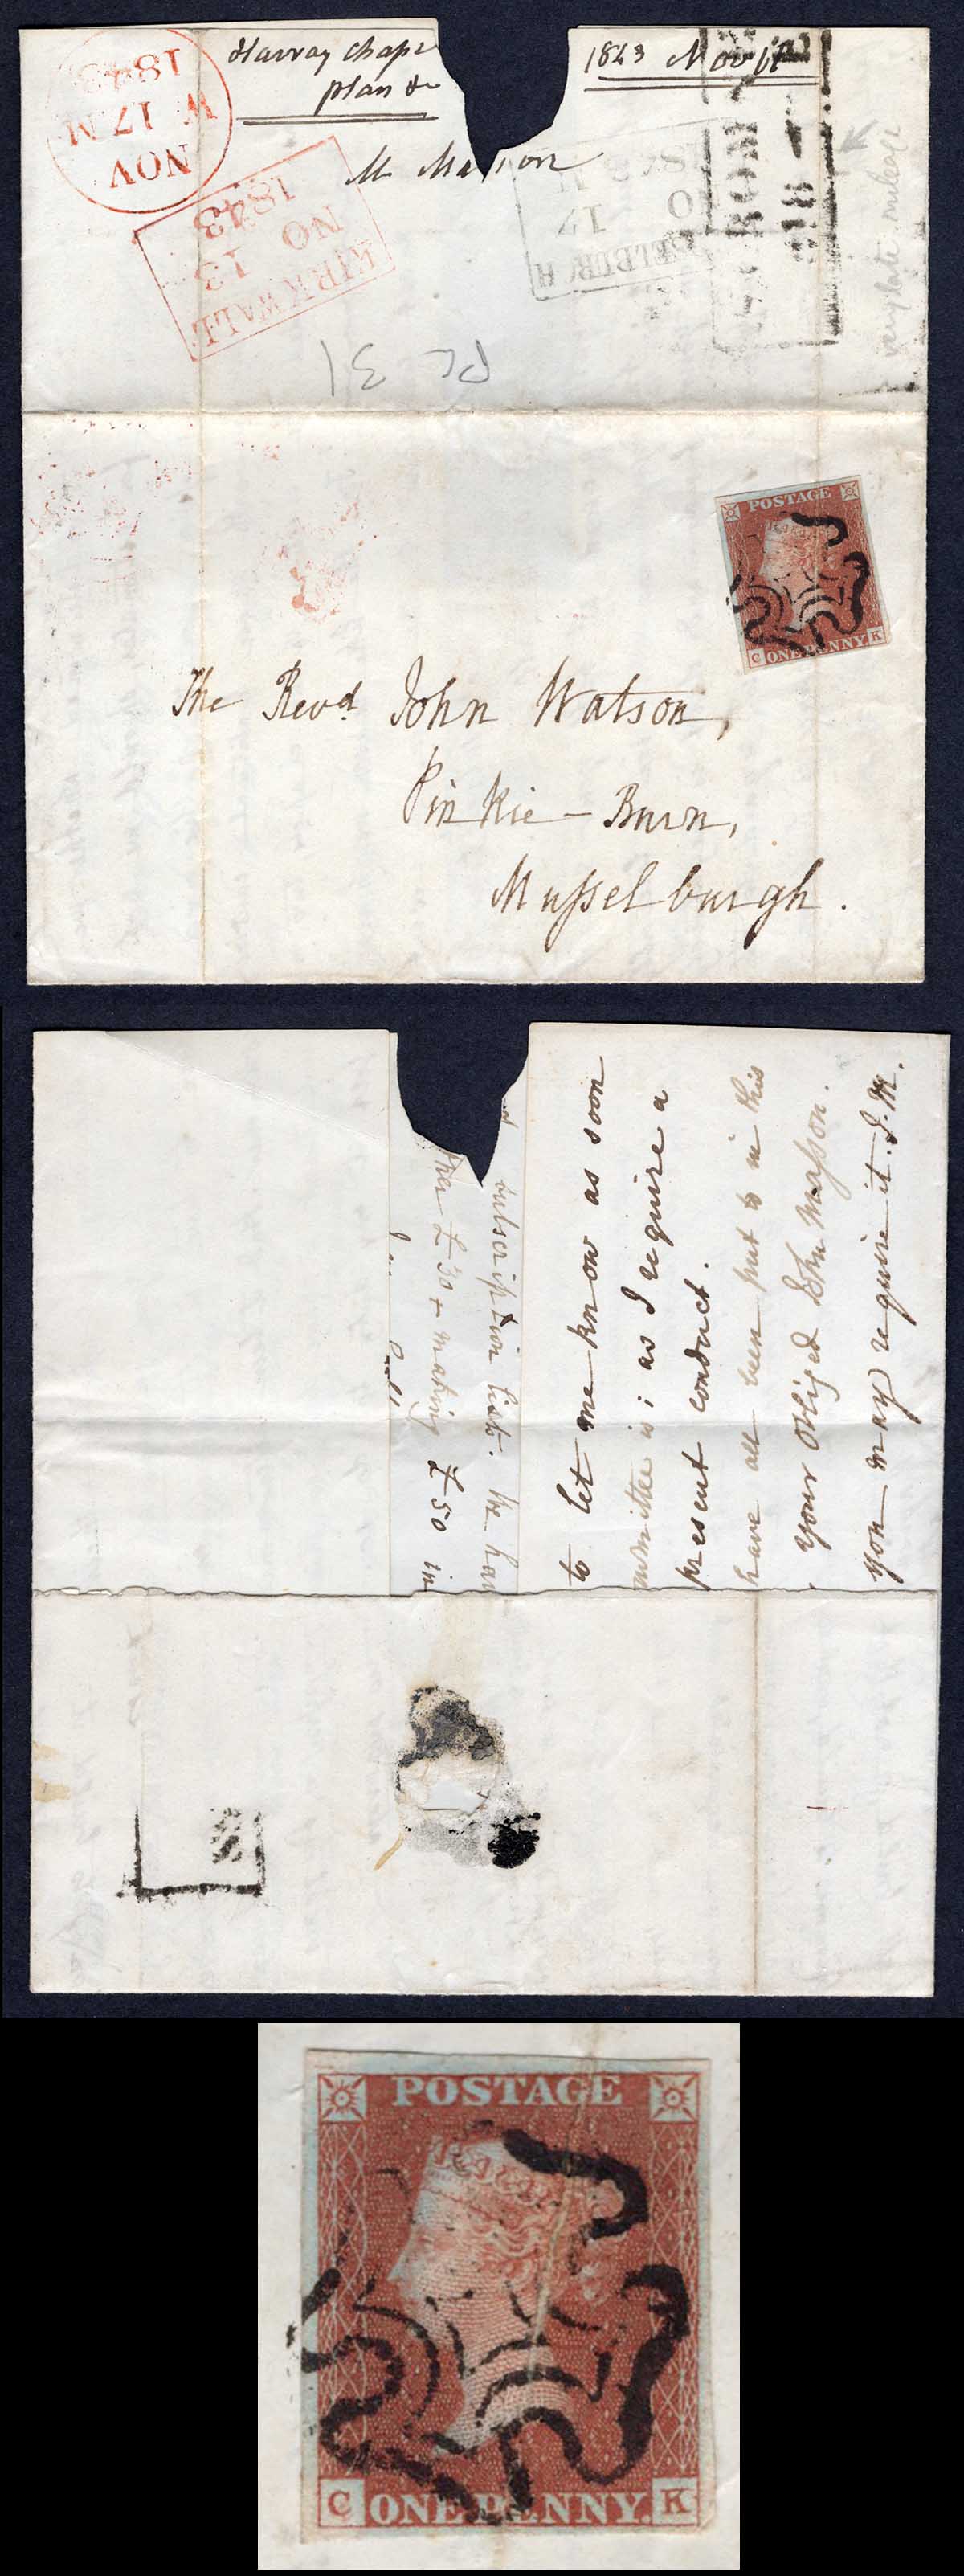 Harray Chape
plan &c
1843 Nov 17
Mr Masson
NOV
W 17 M
1843
KIRKWALL
NO
13
1843
SELBURGH
NO
17
1843
PC 31
POSTAGE
C ONE PENNY. K
The Revd. John Watson,
Pinkie-Burn,
Musselburgh.
subscription lists. He has
ther £30 + making £50 in
to let me know as soon
mmittee is; as I require a
present conduct.
have all been put to in this
your obliged John Masson.
you may require it. J.M.
POSTAGE
C ONE PENNY. K